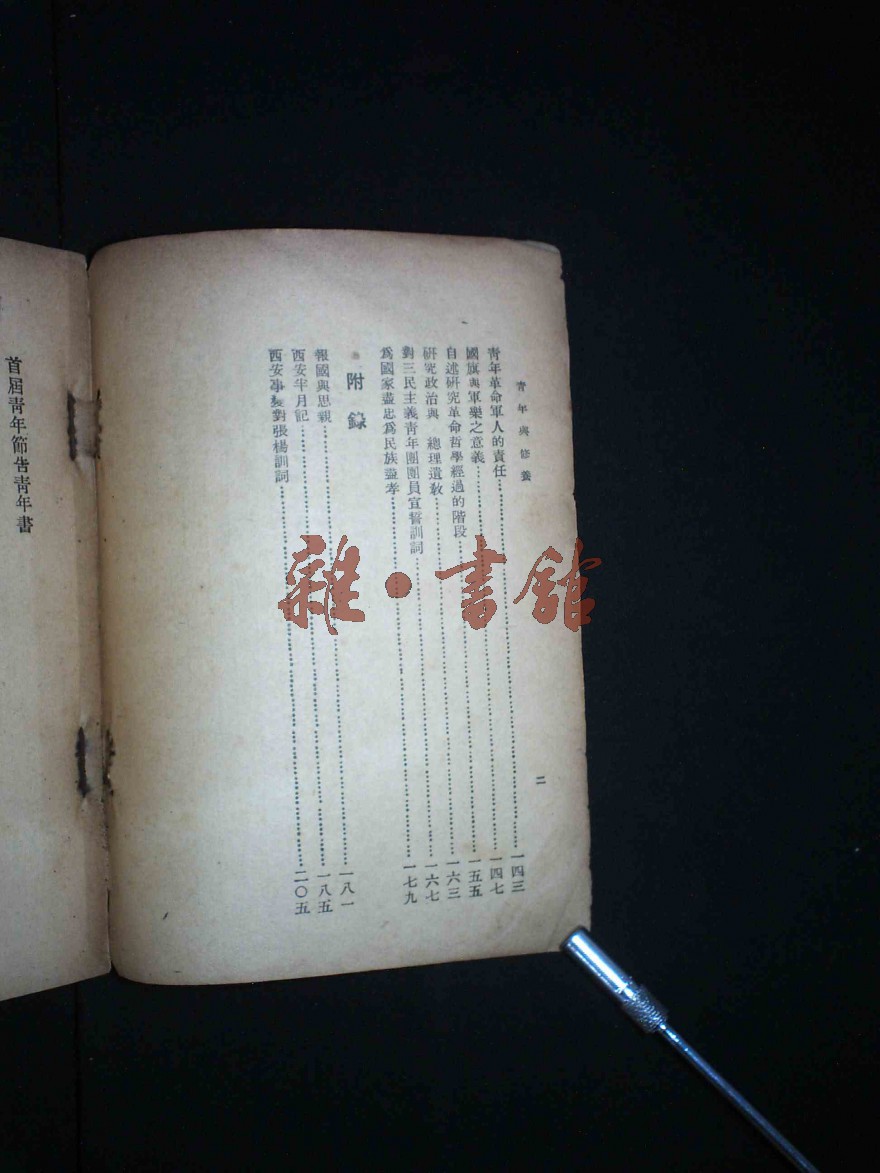 青年與修養
二
青年革命軍人的責任……一四三
國旗與軍樂之意義……一四七
自述研究革命哲學經過的階段……一五五
研究政治與 總理遺敎……一六三
對三民主義青年團團員宣誓訓詞……一六七
爲國家盡忠爲民族盡孝……一七九
附錄
報國與思親……一八一
西安半月記……一八五
西安事變對張楊訓詞……二〇五
首屆青年節告青年書
雜·書館